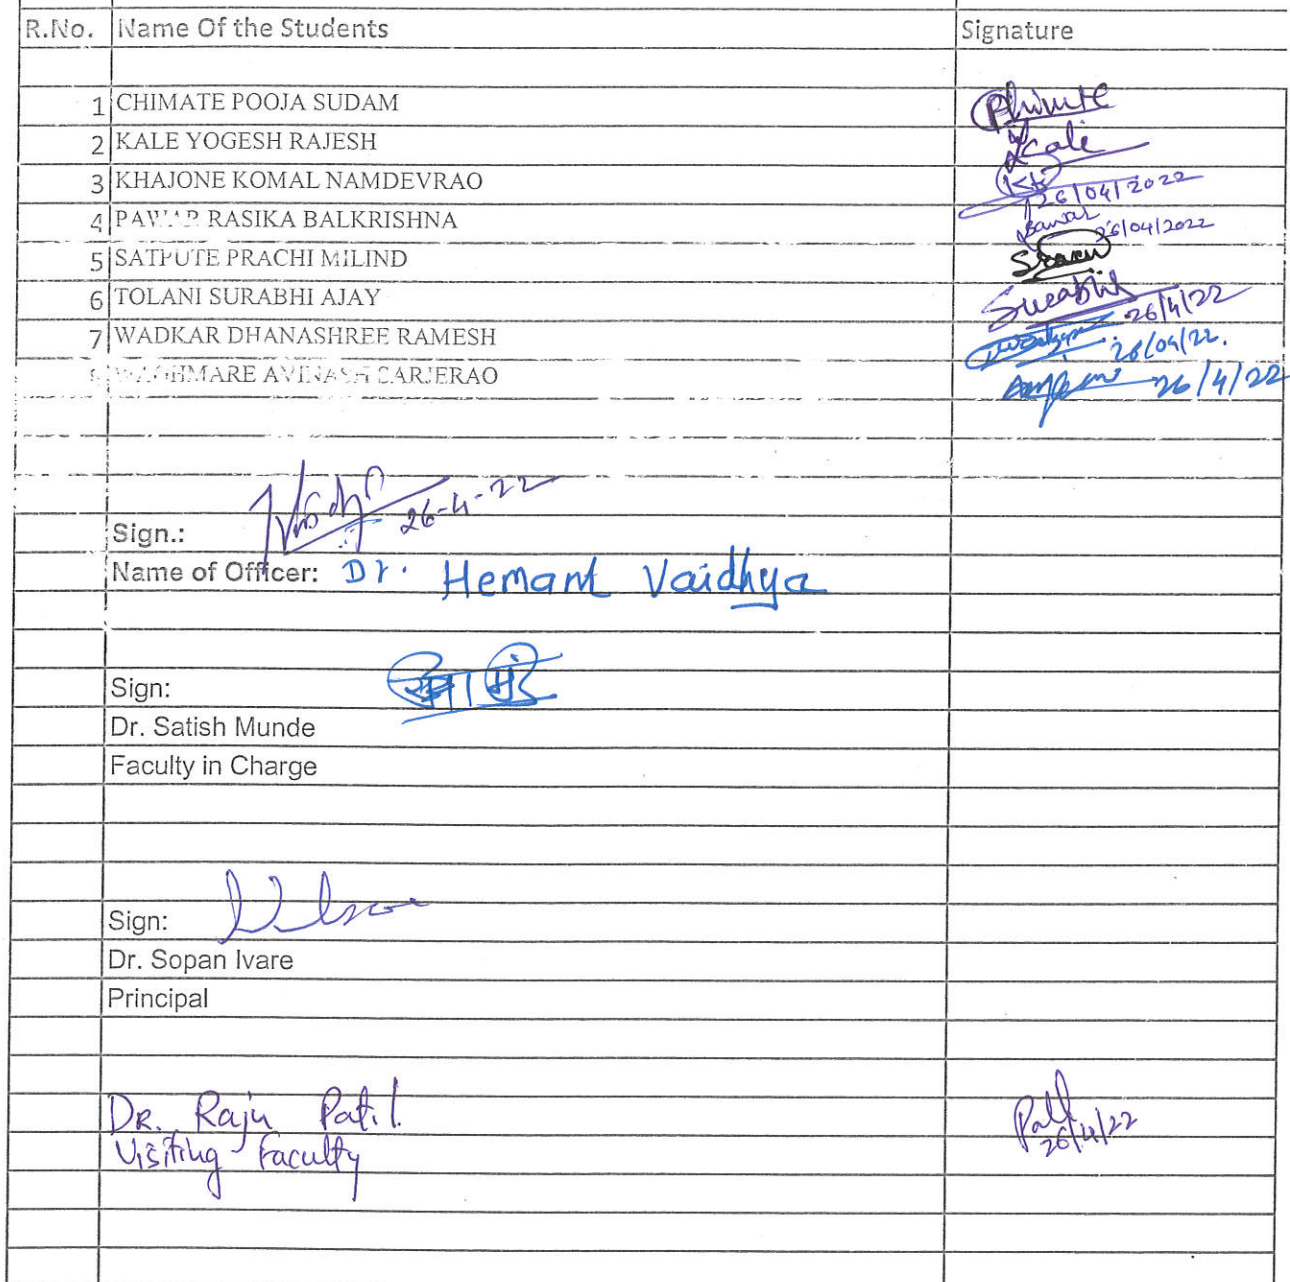 R.No. Name Of the Students Signature
1 CHIMATE POOJA SUDAM
2 KALE YOGESH RAJESH Kale
3 KHAJONE KOMAL NAMDEVRAO 26/04/2022
4 PAWAR RASIKA BALKRISHNA Pawar 26/04/2022
5 SATPUTE PRACHI MILIND
6 TOLANI SURABHI AJAY Surabhi 26/4/22
7 WADKAR DHANASHREE RAMESH 26/04/22.
WAGHMARE AVINASH SARJERAO 26/4/22
Sign.: 26-4-22
Name of Officer: Dr. Hemant Vaidhya
Sign:
Dr. Satish Munde
Faculty in Charge
Sign:
Dr. Sopan Ivare
Principal
DR. Raju Patil 26/4/22
Visiting Faculty